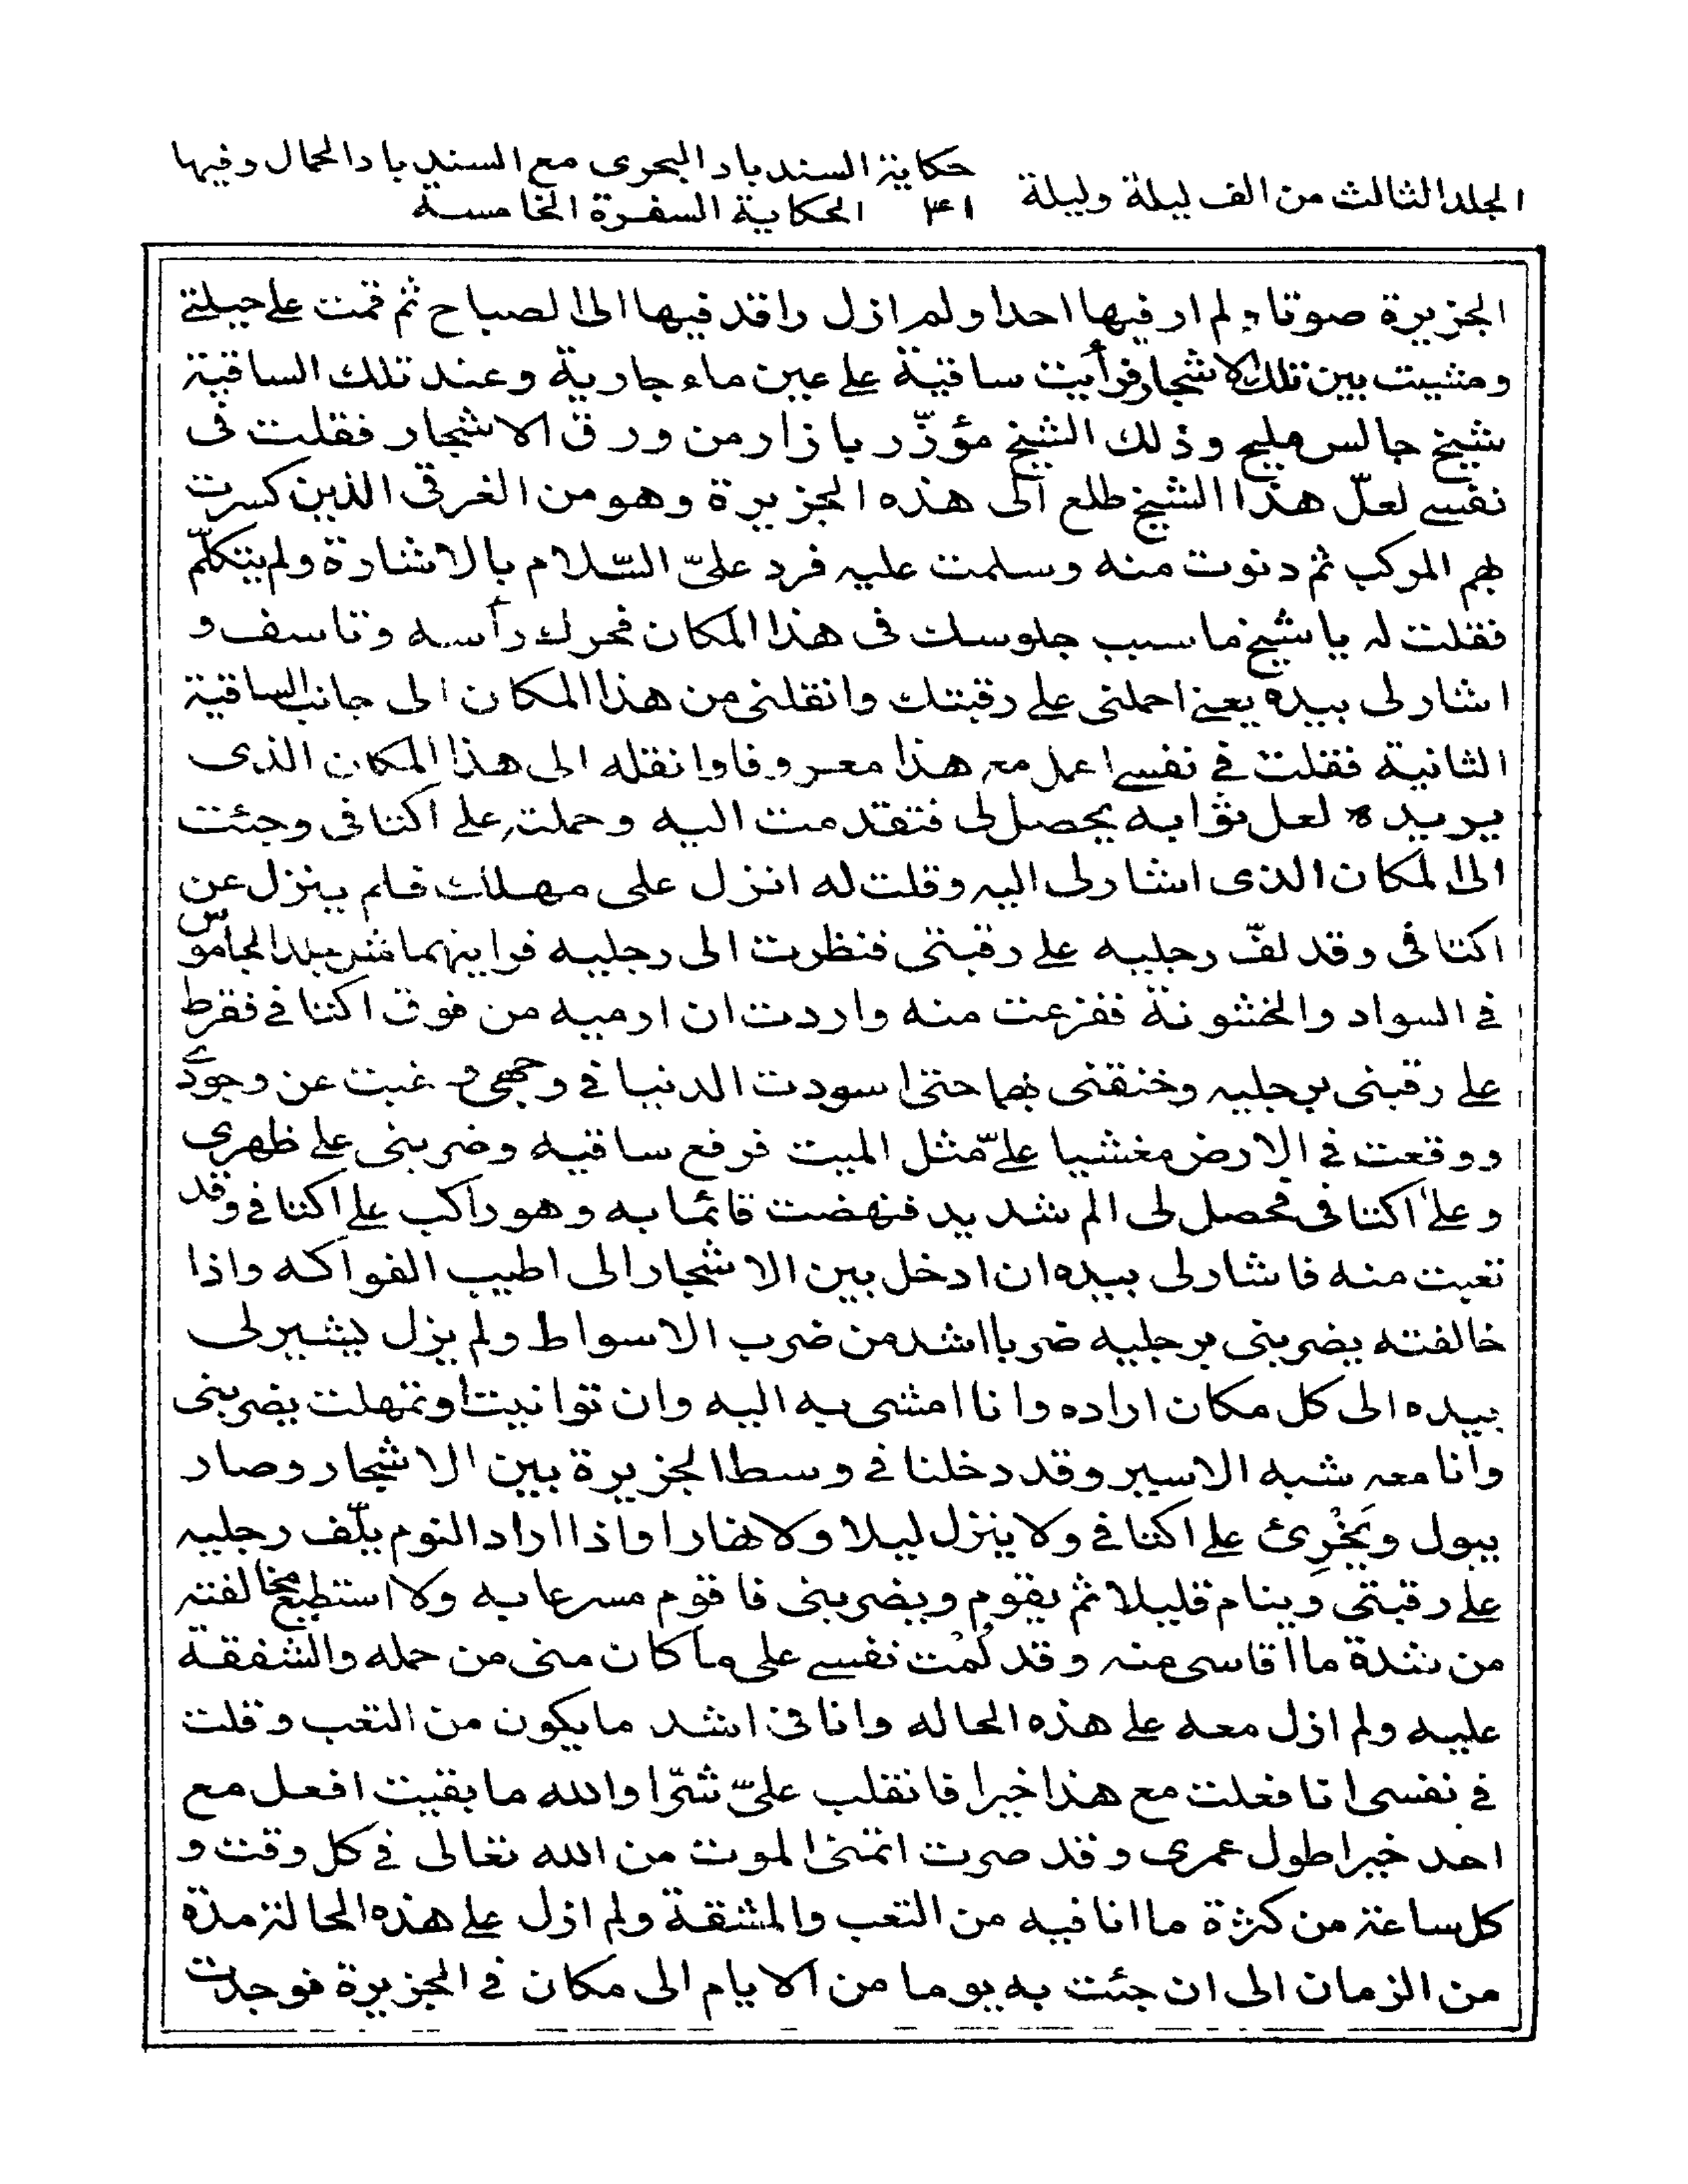 المجلد الثالث من الف ليلة وليلة
حكاية السندباد البحرى مع السندباد الحمال وفيها
الحكاية السفرة الخامسة
الجزيرة صوتا ولم ار فيها احدا ولم ازل راقد فيها الى الصباح ثم قمت على حيلتے
ومشيت بين تلك الاشجار فرأيت ساقية على عين ماء جارية وعند تلك الساقية
شيخ جالس مليح وذلك الشيخ مؤزّر بازار من ورق الاشجار فقلت فى
نفسے لعلّ هذا الشيخ طلع الى هذه الجزيرة وهو من الغرقى الذين كسرت
بهم المركب ثم دنوت منه وسلمت عليه فرد علىّ السّلام بالاشارة ولم يتكلّم
فقلت له يا شيخ ما سبب جلوسك فى هذا المكان فحرك رأسه وتاسف و
اشار لى بيده يعنے احملنى على رقبتك وانقلنى من هذا المكان الى جانب الساقية
الثانية فقلت فے نفسے اعمل مع هذا معروفا وانقله الى هذا المكان الذى
يريده لعل ثوابه يحصل لى فتقدمت اليه وحملته على اكتافى وجئت
الى المكان الذى اشار لى اليه وقلت له انزل على مهلك فلم ينزل عن
اكتافى وقد لفّ رجليه على رقبتى فنظرت الى رجليه فرايتهما مثل جلد الجاموس
فے السواد والخشونة ففزعت منه واردت ان ارميه من فوق اكتافے فقرط
على رقبتى برجليه وخنقنى بهما حتى اسودت الدنيا فے وجهى و غبت عن وجودے
ووقعت فے الارض مغشيا علىّ مثل الميت فرفع ساقيه وضربنى على ظهرى
وعلى اكتافى فحصل لى الم شديد فنهضت قائما به وهو راكب على اكتافے وقد
تعبت منه فاشار لى بيده ان ادخل بين الاشجار الى اطيب الفواكه واذا
خالفته يضربنى برجليه ضربا اشد من ضرب الاسواط ولم يزل يشير لى
بيده الى كل مكان اراده وانا امشى به اليه وان توانيت او تمهلت يضربنى
وانا معه شبه الاسير وقد دخلنا فے وسط الجزيرة بين الاشجار وصار
يبول ويَخْرِئ على اكتافے ولا ينزل ليلا ولا نهارا واذا اراد النوم يلّف رجليه
على رقبتى وينام قليلا ثم يقوم ويضربنى فاقوم مسرعا به ولا استطيع مخالفته
من شدة ما اقاسى منه وقد لُمْت نفسے على ما كان منى من حمله والشفقة
عليه ولم ازل معه على هذه الحاله وانا فى اشد ما يكون من التعب وقلت
فے نفسى انا فعلت مع هذا خيرا فانقلب علىّ شرّا والله ما بقيت افعل مع
احد خيرا طول عمرى وقد صرت اتمنى الموت من الله تعالى فے كل وقت و
كل ساعة من كثرة ما انا فيه من التعب والمشقة ولم ازل على هذه الحالة مدة
من الزمان الى ان جئت به يوما من الايام الى مكان فے الجزيرة فوجدت